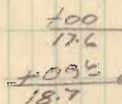 +00
17.6
+095
18.7